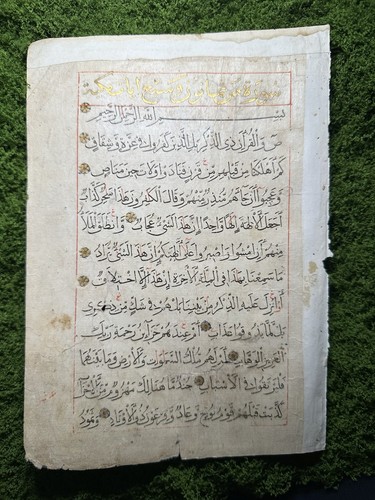 بسم الله الرحمن الرحيم
ص والقرآن ذي الذكر بل الذين كفروا في عزة وشقاق
كم أهلكنا من قبلهم من قرن فنادوا ولات حين مناص
وعجبوا أن جاءهم منذر منهم وقال الكافرون هذا ساحر كذاب
أجعل الآلهة إلها واحدا إن هذا لشيء عجاب وانطلق الملأ
منهم أن امشوا واصبروا على آلهتكم إن هذا لشيء يراد
ما سمعنا بهذا في الملة الآخرة إن هذا إلا اختلاق
أأنزل عليه الذكر من بيننا بل هم في شك من ذكري
بل لما يذوقوا عذاب أم عندهم خزائن رحمة ربك
العزيز الوهاب أم لهم ملك السموات والأرض وما بينهما
فليرتقوا في الأسباب جند ما هنالك مهزوم من الأحزاب
كذبت قبلهم قوم نوح وعاد وفرعون ذو الأوتاد وثمود